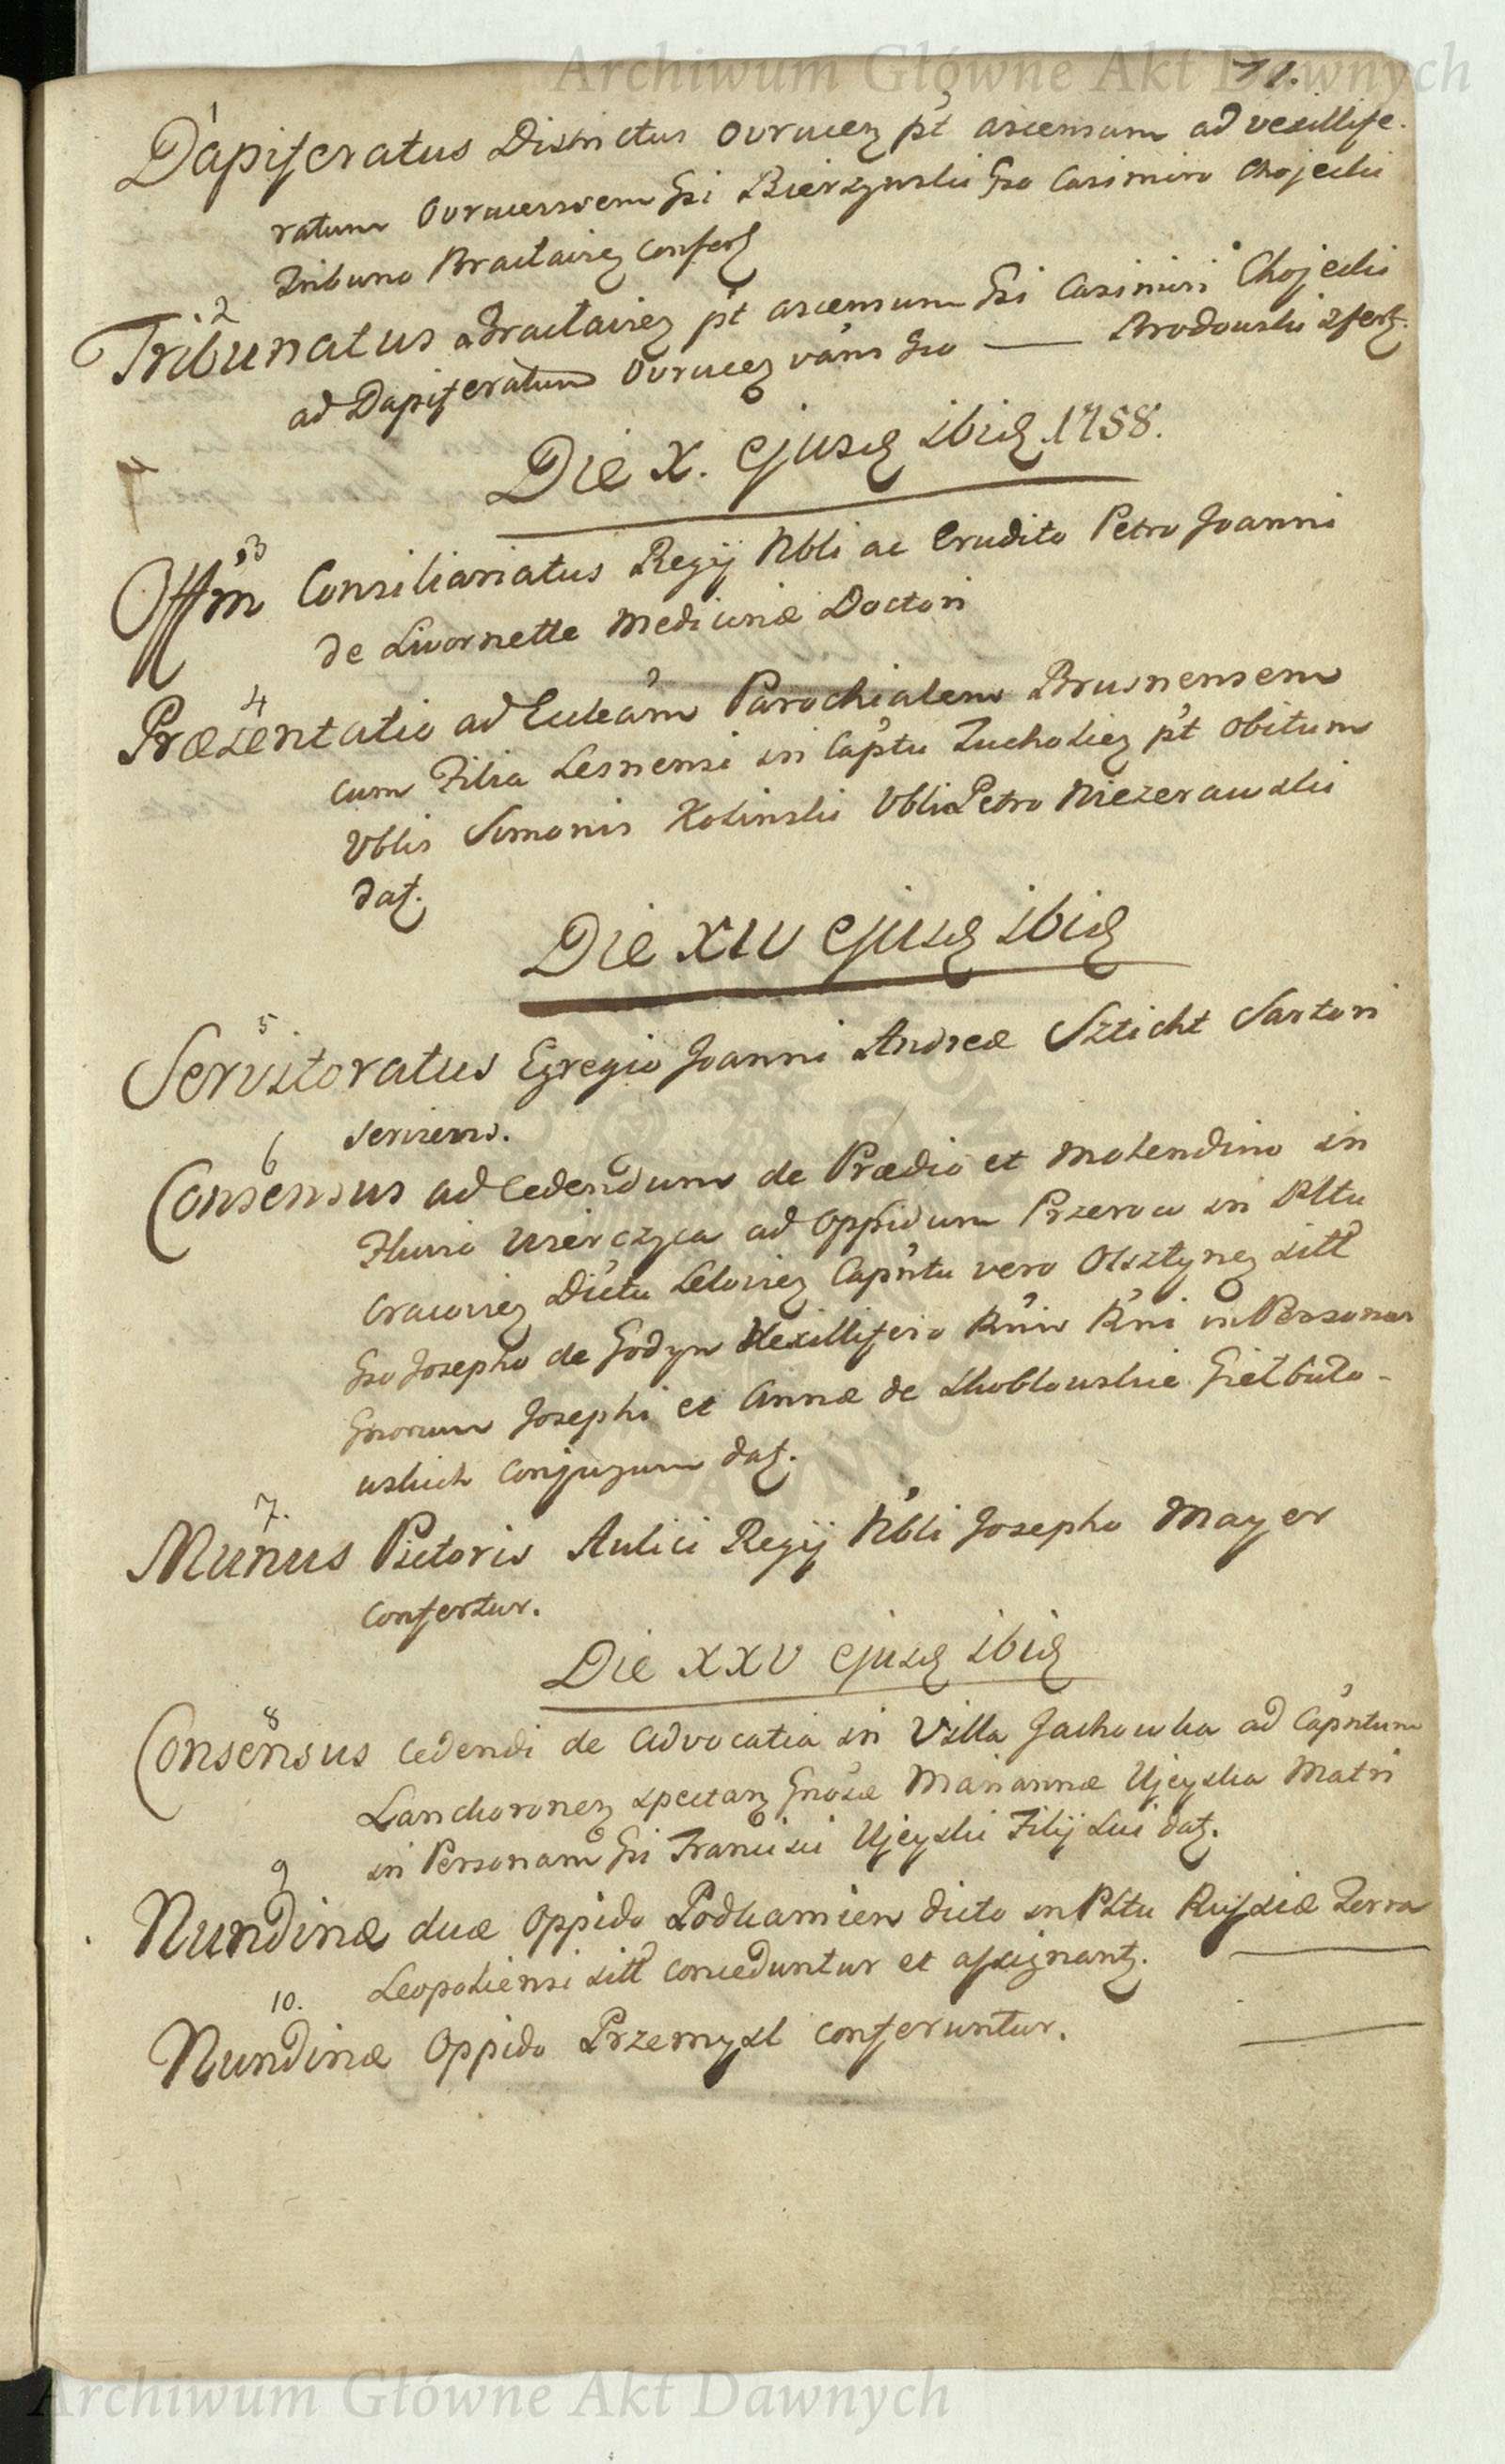 Archiwum Główne Akt Dawnych
71.
1
Dapiferatus Districtus Ovrucen pt ascensum ad vexillife-
ratum Ovrucensem Gsi Bierzynski Gso Casimiro Chojecki
Tribuno Braclavien confert
2
Tribunatus Braclavien pt ascensum Gsi Casimiri Chojecki
ad Dapiferatum Ovrucen vans Gso —— Brodowski confert.
Die X. ejusd ibid 1758.
3
Offm Consiliariatus Regij Nbli ac Erudito Petro Joanni
de Livornette Medicinæ Doctori
4
Præsentatio ad Eccleam Parochialem Brusnensem
cum Filia Lesnensi in Captu Tucholien pt obitum
Vblis Simonis Kolinski Vbli Petro Niezerawski
dat.
Die XIV ejusd ibid
5
Servitoratus Egregio Joanni Andreæ Szticht Sartori
serviens.
6
Consensus ad Cedendum de Prædio et Molendino in
Fluvio Wierczyca ad Oppidum Przerow in Pltu
Cracovien Dictu Lelovien Capntu vero Olsztynen sitt
Gso Josepho de Godyn Vexillifero Rmiw Rni in Personas
Gsorum Josephi et Annæ de Skoblowskie Gielbuto-
wskich Conjugum dat.
7.
Munus Pictoris Aulici Regij Nbli Josepho Mayer
confertur.
Die XXV ejusd ibid
8
Consensus cedendi de Advocatia in Villa Jachowka ad Capntum
Lanckoronen spectan Gnosæ Mariannæ Ujeyska Matri
in Personam Gsi Francisci Ujeyski Filij sui dat.
9
Nundinæ duæ Oppido Podkamien dicto in Pltu Russiæ Terra
Leopoliensi sitt conceduntur et assignant.
10.
Nundinæ Oppido Przemysl conferuntur.
Archiwum Główne Akt Dawnych